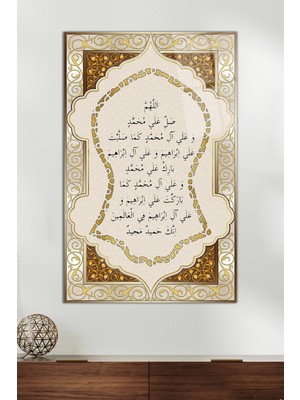 اللَّهُمَّ
صَلِّ عَلَي مُحَمَّدٍ
وَ عَلَي آلِ مُحَمَّدٍ كَمَا صَلَّيْتَ
عَلَي اِبْرَاهِيمَ وَ عَلَي آلِ اِبْرَاهِيمَ
بَارِكْ عَلَي مُحَمَّدٍ
وَ عَلَي آلِ مُحَمَّدٍ كَمَا
بَارَكْتَ عَلَي اِبْرَاهِيمَ وَ
عَلَي آلِ اِبْرَاهِيمَ فِي الْعَالَمِينَ
اِنَّكَ حَمِيدٌ مَجِيدٌ